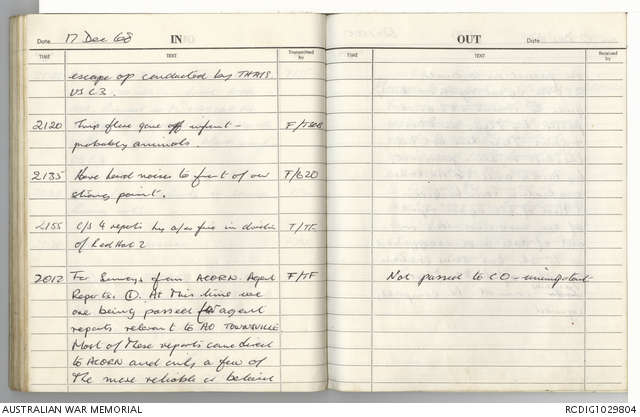 Date 17 Dec 68 IN
TIME TEXT Transmitted by
escape op conducted by THAIS
VS C3.
2120 Trip flare gone off infront — F/T30B
probably animals.
2135 Have heard noises to front of our F/620
strong point.
2155 C/S 4 reports hy a/w fire in direction T/TF
of Red Hat 2
2012 For Sunrays from ACORN. Agent F/TF
Reports ①. At this time we
are being passed agent
reports relevant to AO TOWNSVILLE.
Most of these reports come direct
to ACORN and only a few of
the more reliable is believed
OUT Date
TIME TEXT Received by
Not passed to CO - unimportant
AUSTRALIAN WAR MEMORIAL
RCDIG1029804